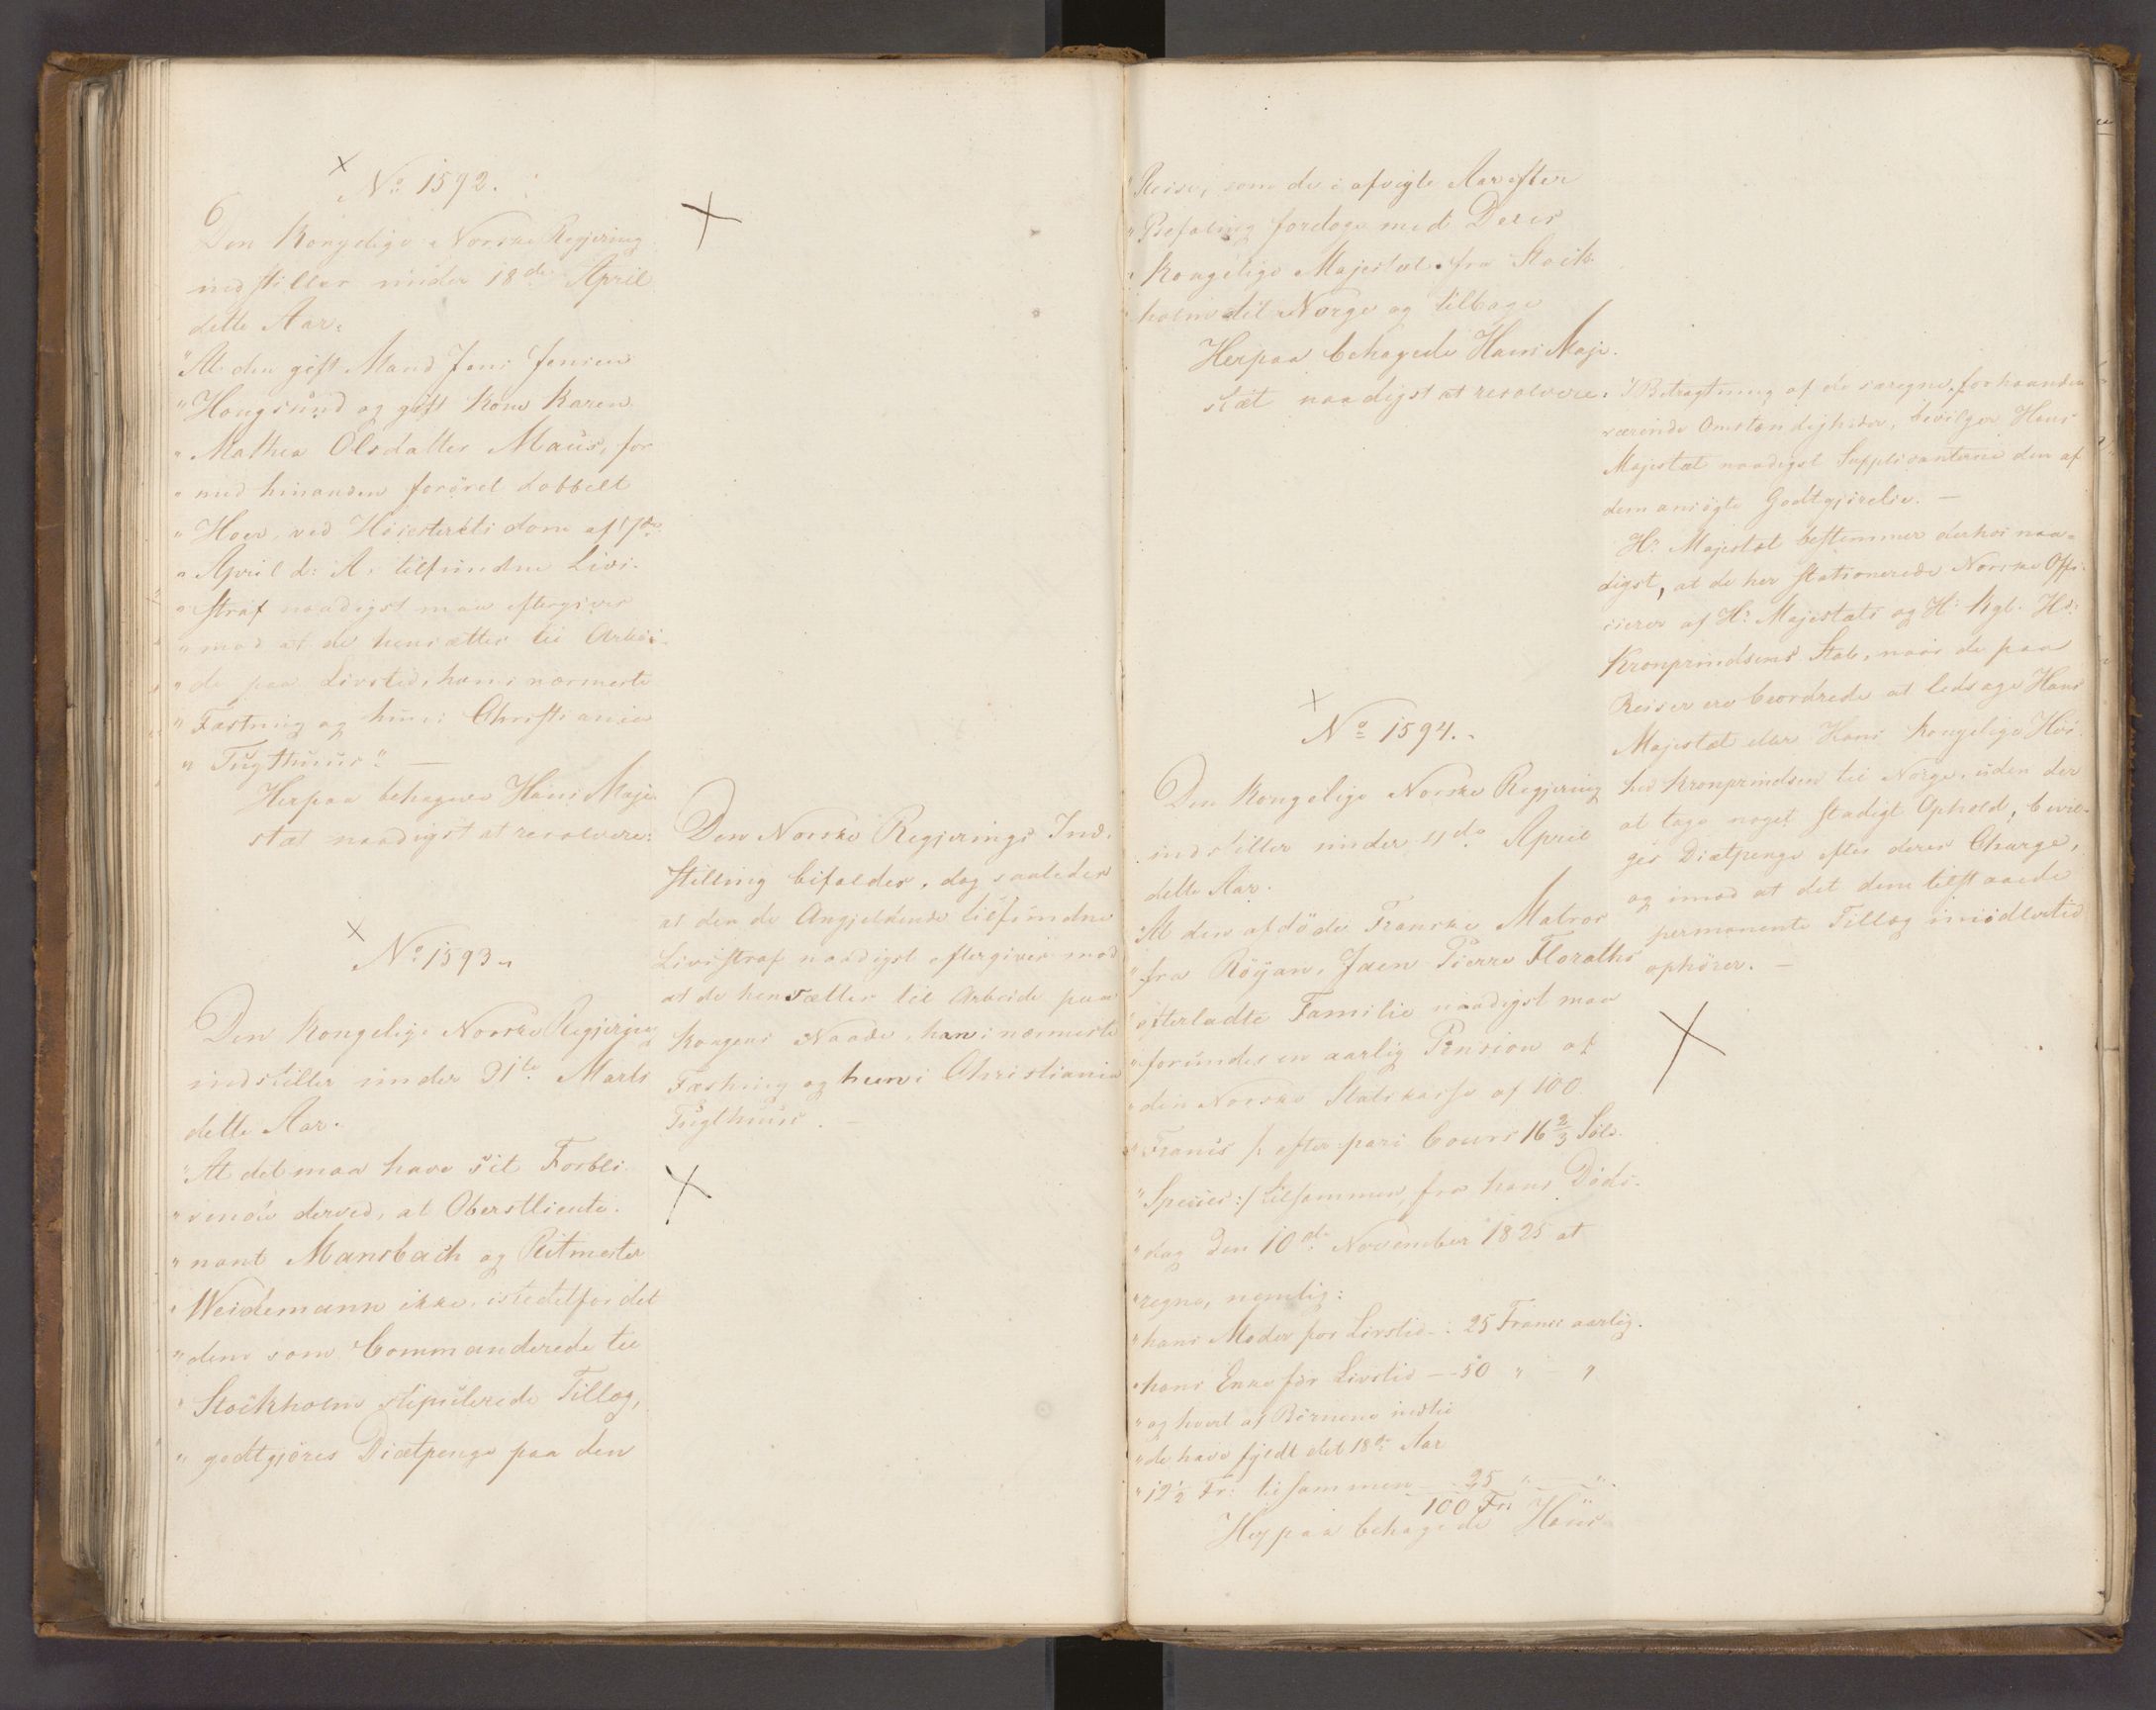 No 1592.
Den Kongelige Norske Regjering
indstiller under 18de April
dette Aar:
"At den gift Mand Jens Jensen
"Hougsund og gift Kone Karen
"Mathea Olsdatter Maus, for
"med hinanden forövet dobbelt
"Hoer, ved Höiesterets dom af 17de
"April d: A: tilfundne Livs-
"straf naadigst maa eftergives
"mod at de hensættes til Arbei-
"de paa Livstid, han i nærmeste
"Fæstning og hun i Christiania
"Tugthuus". —
Herpaa behagede Hans Maje-
stæt naadigst at resolvere:
Den Norske Regjerings Ind-
stilling bifaldes, dog saaledes
at den de Angjeldende tilfundne
Livsstraf naadigst eftergives mod
at de hensættes til Arbeide paa
Kongens Naade, han i nærmeste
Fæstning og hun i Christiania
Tugthuus. —
No 1593.
Den Kongelige Norske Regjering
indstiller under 31te Marts
dette Aar.
"At det maa have sit Forbli-
"vende derved, at Oberstlieute-
"nant Mansbach og Ritmester
"Weidemann ikke, istedetfor det
"dem som Commanderede til
"Stockholm stipulerede Tillæg,
"godtgjöres Diætpenge paa den
"Reise, som de i afvigte Aar efter
"Befaling foretoge med Deres
"Kongelige Majestæt fra Stock-
"holm til Norge og tilbage
Herpaa behagede Hans Maje-
stæt naadigst at resolvere:
I Betragtning af de særegne forhaanden
værende Omstændigheder, bevilger Hans
Majestæt naadigst Supplicanterne den af
dem ansögte Godtgjörelse. —
Hs Majestæt bestemmer derhos naa-
digst, at de her stationerede Norske Offi-
cierer af Hs Majestæts og Hs Kgl. Hds
Kronprindsens Stab, naar de paa
Reiser ere beordrede at ledsage Hans
Majestæt eller Hans Kongelige Höi-
hed Kronprindsen til Norge, uden der
at tage noget stadigt Ophold, bevil-
ges Diætpenge efter deres Charge,
og imod at det dem tilstaaede
permanente Tillæg imidlertid
ophörer. —
No 1594.
Den Kongelige Norske Regjering
indstiller under 4de April
dette Aar.
"At den afdöde Franske Matros
"fra Röyan, Jaen Pierre Floraths
"efterladte Familie naadigst maa
"forundes en aarlig Pension af
"den Norske Statskasse af 100
"Francs /: efter pari Cours 16 2/3 Sölv
"Species:/ tilsammen, fra hans Döds-
"dag den 10de November 1825 at
"regne, nemlig:
"hans Moder for Livstid - 25 Francs aarlig.
"hans Enke for Livstid — 50 " "
"og hvert af Börnene indtil
"de have fyldt det 18de Aar
"12 1/2 Fr: tilsammen 25 " — ".
100 Fr:
Herpaa behagede Hans